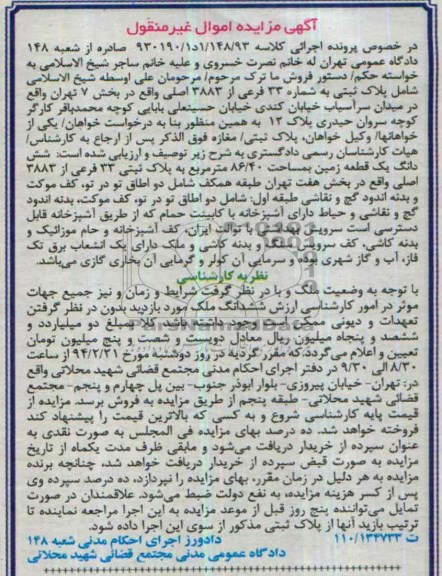 آگهی مزایده اموال غیرمنقول
در خصوص پرونده اجرائی کلاسه ۱/۱۴۸/۹۳اد/۹۳۰۱۹۰ صادره از شعبه ۱۴۸
دادگاه عمومی تهران له خانم نصرت خسروی و علیه خانم ساجر شیخ الاسلامی به
خواسته حکم/ دستور فروش ما ترک مرحوم/ مرحومان علی اوسطه شیخ الاسلامی
شامل پلاک ثبتی به شماره ۳۳ فرعی از ۳۸۸۳ اصلی واقع در بخش ۷ تهران واقع
در میدان سرآسیاب خیابان کندی خیابان حسینعلی بابایی کوچه محمدباقر کارگر
کوچه سروان حیدری پلاک ۱۳ به همین منظور بنا به درخواست خواهان/ یکی از
خواهانها/ وکیل خواهان، پلاک ثبتی/ مغازه فوق الذکر پس از ارجاع به کارشناس/
هیات کارشناسان رسمی دادگستری به شرح زیر توصیف و ارزیابی شده است: شش
دانگ یک قطعه زمین بمساحت ۸۶/۴۰ مترمربع به پلاک ثبتی ۳۳ فرعی از ۳۸۸۳
اصلی واقع در بخش هفت تهران طبقه همکف شامل دو اطاق تو در تو، کف موکت
و بدنه اندود گچ و نقاشی طبقه اول: شامل دو اطاق تو در تو، کف موکت، بدنه اندود
گچ و نقاشی و حیاط دارای آشپزخانه با کابینت حمام که از طریق آشپزخانه قابل
دسترسی است سرویس بهداشتی با توالت ایران، کف آشپزخانه و حام موزائیک و
بدنه کاشی، کف سرویس سنگ و بدنه کاشی و ملک دارای یک انشعاب برق تک
فاز، آب و گاز شهری بوده و سرمایی آن کولر و گرمایی آن بخاری گازی می‌باشد.
نظریه کارشناسی
با توجه به وضعیت ملک و با در نظر گرفت شرایط و زمان و نیز جمیع جهات
موثر در امور کارشناسی ارزش ششدانگ ملک مورد بازدید بدون در نظر گرفتن
تعهدات و دیونی که ممکن است وجود داشته باشد کلا مبلغ دو میلیاردد و
ششصد و پنجاه میلیون ریال معادل دویست و شصت و پنج میلیون تومان
تعیین و اعلام می‌گردد.که مقرر گردید در روز دوشنبه مورخ ۹۴/۲/۲۱ از ساعت
۸/۳۰ الی ۹/۳۰ در دفتر اجرای احکام مدنی مجتمع قضائی شهید محلاتی واقع
در: تهران- خیابان پیروزی- بلوار ابوذر جنوب- بین پل چهارم و پنجم- مجتمع
قضائی شهید محلاتی- طبقه پنجم از طریق مزایده به فروش برسد. مزایده از
قیمت پایه کارشناسی شروع و به کسی که بالاترین قیمت را پیشنهاد کند
فروخته خواهد شد. ده درصد بهای مزایده فی المجلس به صورت نقدی به
عنوان سپرده از خریدار دریافت می‌شود و مابقی ظرف مدت یکماه از تاریخ
مزایده به صورت قبض سپرده از خریدار دریافت خواهد شد، چنانچه برنده
مزایده به هر دلیل در زمان مقرر، بهای مزایده را نپردازد، ده درصد سپرده وی
پس از کسر هزینه مزایده، به نفع دولت ضبط می‌شود. علاقمندان در صورت
تمایل می‌توانند پنج روز قبل از موعد مزایده به این اجرا مراجعه نماینده تا
ترتیب بازید آنها از پلاک ثبتی مذکور از سوی این اجرا داده شود.
ت ۱۱۰/۱۳۴۷۳۳ دادورز اجرای احکام مدنی شعبه ۱۴۸
دادگاه عمومی مدنی مجتمع قضائی شهید محلاتی